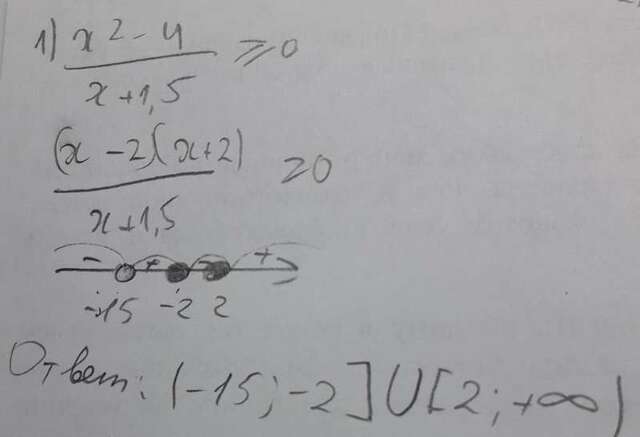 1) x² - 4 / x + 1,5 ⩾ 0
(x - 2)(x + 2) / x + 1,5 ⩾ 0
- + - +
-15 -2 2
Ответ: (-15; -2] U [2; +∞)